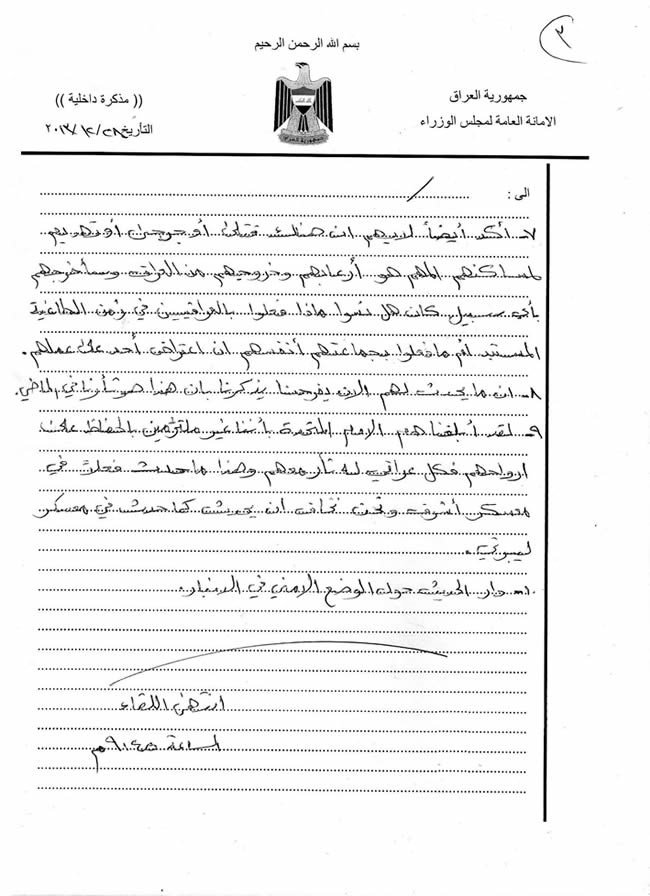 ٣
بسم الله الرحمن الرحيم
جمهورية العراق
الامانة العامة لمجلس الوزراء
(( مذكرة داخلية ))
التأريخ ٢٨/١٢/٢٠١٣
الى :
٧- أكد أيضاً لديهم ان هنالك قتلى أو جرحى أو تهديم
لمساكنهم المهم هو أرعابهم وخروجهم من العراق وسأخرجهم
بأي سبيل كان هل نسوا ماذا فعلوا بالعراقيين في زمن الطاغية
المستبد أم ما فعلوا بجماعتهم أنفسهم ان اعترض أحد على عملهم.
٨- ان ما يحدث لهم الان يفرحنا بان هذا هو في الماضي.
٩- لقد أبلغنا الامم المتحدة بأننا غير ملتزمين بالحفاظ على
ارواحهم فكل عراقي له ثأر معهم وهذا ما حدث فعلاً في
معسكر أشرف ونحن نخاف ان يحدث كما حدث في معسكر
ليبرتي.
١٠- دار الحديث حول الوضع الامني في الانبار.
انتهى اللقاء
الساعة ٩:٤٥ م